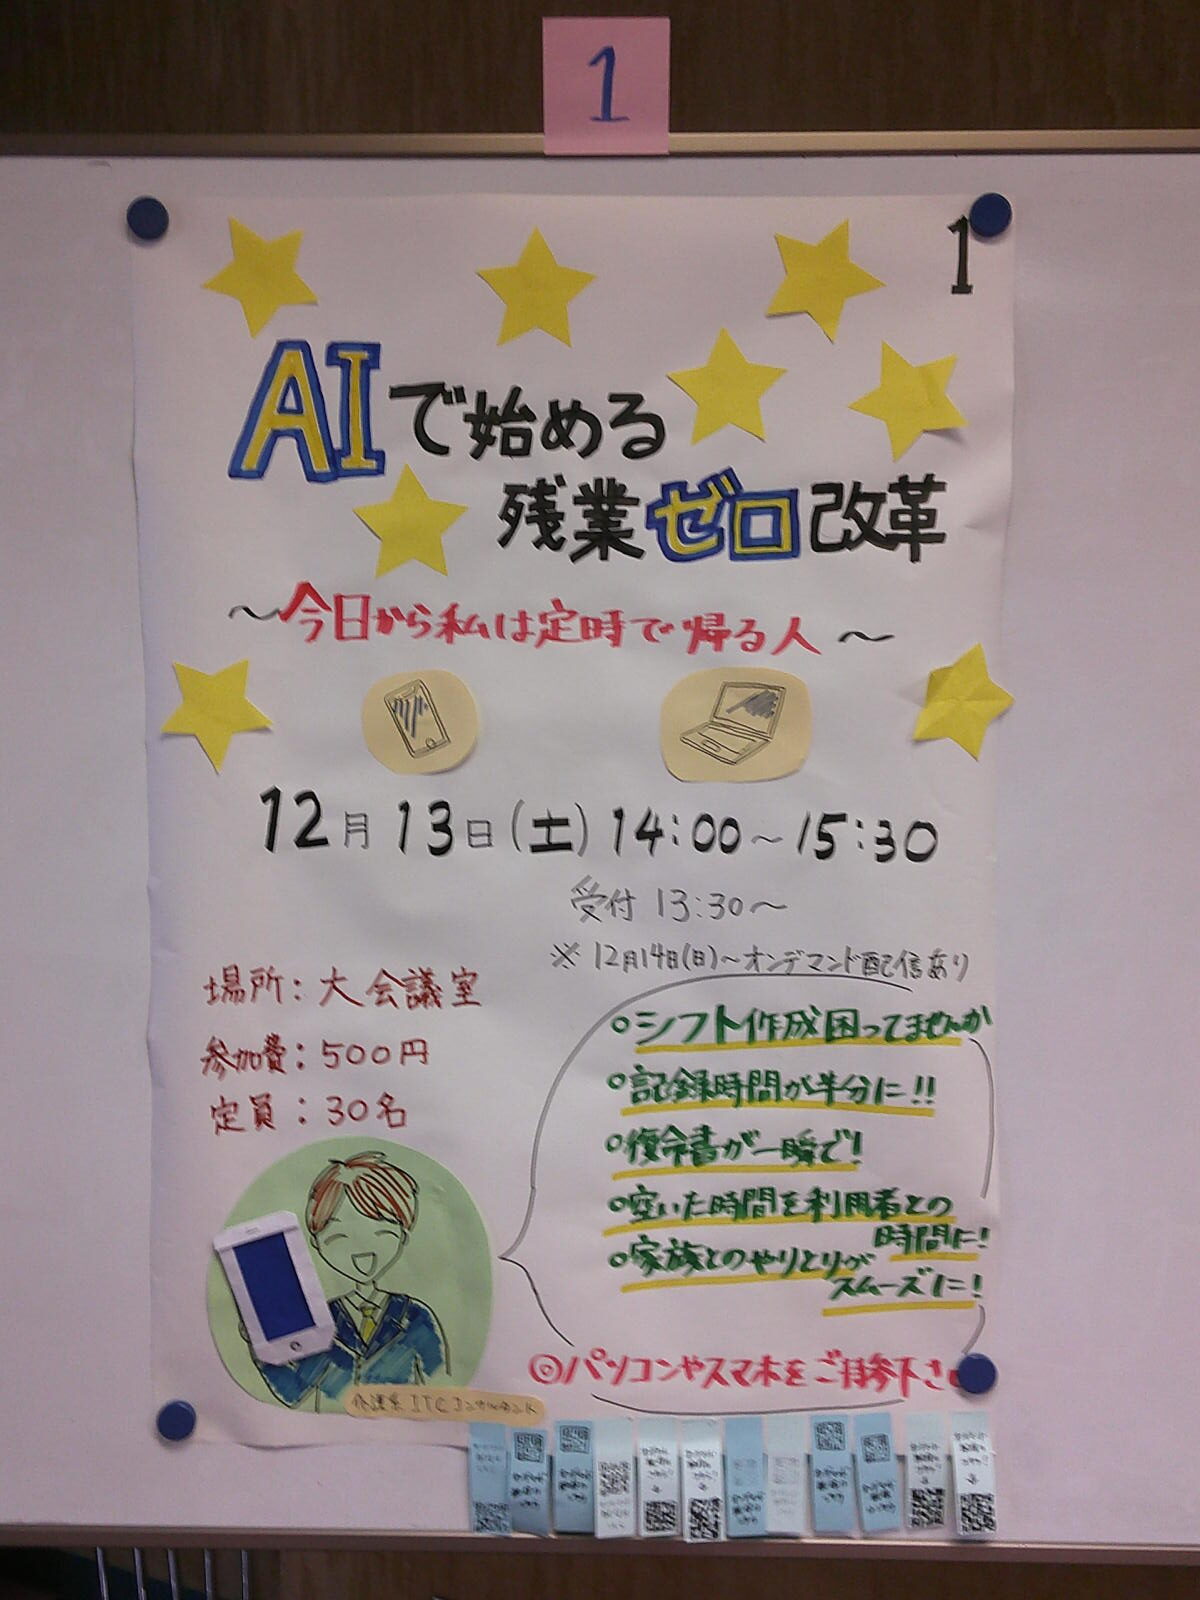 1
1
AIで始める
残業ゼロ改革
～今日から私は定時で帰る人～
12月13日(土) 14:00～15:30
受付 13:30～
※12月14日(日)～オンデマンド配信あり
場所：大会議室
参加費：500円
定員：30名
○シフト作成困ってませんか
○記録時間が半分に!!
○復命書が一瞬で!
○空いた時間を利用者との
時間に!
○家族とのやりとりが
スムーズに!
◎パソコンやスマホをご持参下さ
介護系ITCコンサルタント